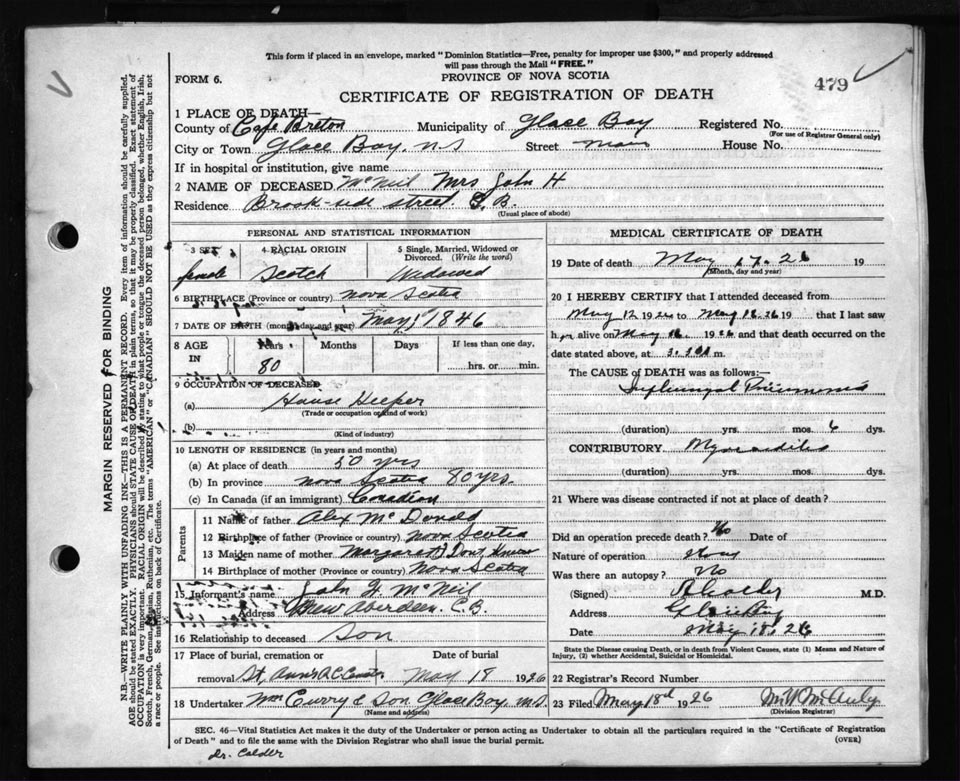 This form if placed in an envelope, marked "Dominion Statistics—Free, penalty for improper use $300," and properly addressed
will pass through the Mail "FREE."
FORM 6.
PROVINCE OF NOVA SCOTIA
479
CERTIFICATE OF REGISTRATION OF DEATH
1 PLACE OF DEATH—
County of Cape Breton Municipality of Glace Bay Registered No.
(For use of Registrar General only)
City or Town Glace Bay. N.S Street Main House No.
If in hospital or institution, give name
2 NAME OF DECEASED McNeil Mrs John H
Residence Brook-side street G.B.
(Usual place of abode)
PERSONAL AND STATISTICAL INFORMATION
3 SEX 4 RACIAL ORIGIN 5 Single, Married, Widowed or Divorced. (Write the word)
female Scotch Widowed
6 BIRTHPLACE (Province or country) Nova Scotia
7 DATE OF BIRTH (month, day and year) May 1846
8 AGE IN Years Months Days If less than one day,
80 hrs. or min.
9 OCCUPATION OF DECEASED
(a) House Keeper
(Trade or occupation or kind of work)
(b)
(Kind of industry)
10 LENGTH OF RESIDENCE (in years and months)
(a) At place of death 50 yrs
(b) In province Nova Scotia 80 yrs.
(c) In Canada (if an immigrant) Canadian
Parents
11 Name of father Alex McDonald
12 Birthplace of father (Province or country) Nova Scotia
13 Maiden name of mother Margaret Dont Know
14 Birthplace of mother (Province or country) Nova Scotia
15 Informant's name John H McNeil
Address New Aberdeen C.B.
16 Relationship to deceased Son
17 Place of burial, cremation or removal Date of burial
St, Ann's R C Cemt May 18 1926
18 Undertaker Wm Curry & Son Glace Bay, N.S
(Name and address)
MEDICAL CERTIFICATE OF DEATH
19 Date of death May 17. 26 19
(Month, day and year)
20 I HEREBY CERTIFY that I attended deceased from
May 12 1926 to May 16. 26 19 that I last saw
her alive on May 16. 1926 and that death occurred on
date stated above, at m.
The CAUSE of DEATH was as follows:—
Influenzal Pneumonia
(duration) yrs. mos. 6 dys.
CONTRIBUTORY Myocarditis
(duration) yrs. mos. dys.
21 Where was disease contracted if not at place of death?
Did an operation precede death? No Date of
Nature of operation
Was there an autopsy? No
(Signed) M.D.
Address Glace Bay
Date May 18. 26
State the Disease causing Death, or in death from Violent Causes, state (1) Means and Nature of
Injury, (2) whether Accidental, Suicidal or Homicidal.
22 Registrar's Record Number
23 Filed May 18d 1926
(Division Registrar)
SEC. 46—Vital Statistics Act makes it the duty of the Undertaker or person acting as Undertaker to obtain all the particulars required in the "Certificate of Registration
of Death" and to file the same with the Division Registrar who shall issue the burial permit. (OVER)
Dr. Calder
MARGIN RESERVED FOR BINDING
N.B.—WRITE PLAINLY WITH UNFADING INK—THIS IS A PERMANENT RECORD. Every item of information should be carefully supplied.
AGE should be stated EXACTLY. PHYSICIANS should STATE CAUSE OF DEATH in plain terms, so that it may be properly classified. Exact statement of
OCCUPATION is very important. RACIAL ORIGIN will be described by stating to what people or tongue the deceased person belonged, whether English, Irish,
Scotch, French, German, Russian, Ruthenian, etc. The terms "AMERICAN" or "CANADIAN" SHOULD NOT BE USED as they express citizenship but not
a race or people. See instructions on back of Certificate.